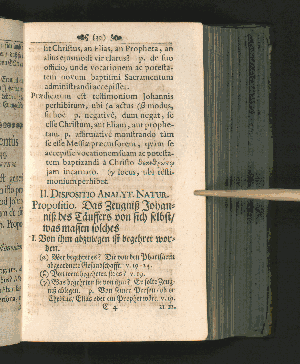 (20)
sit Christus, an Elias, an Propheta, an
alius ejusmodi vir clarus? p. de suo
officio, unde vocationem ac potesta-
tem novum baptismi Sacramentum
administrandi accepisset.
Prædicatum est testimonium Johannis
perhibitum, ubi (α actus (β modus,
sc. hoc p. negativè, dum negat, se
esse Christum, aut Eliam, aut prophe-
tam. p. affirmativè monstrando tàm
se esse Messiæ præcursorem, quàm se
accepisse vocationem suam ac potesta-
tem baptizandi à Christo
jam incarnato. (γ locus, ubi testi-
monium perhibet.
II. DISPOSITIO ANALYT. NATUR.
Propositio. Das Zeugniß Johan-
nis des Täuffers von sich selbst/
was massen solches
I. Von ihm abzulegen ist begehret wor-
den.
(α) Wer begehret es? Die von den Pharisäern
abgeordnete Gesandschafft. v. 19. 24.
(β) Von wem begehret sie es? v. 19.
(γ) Was begehret sie von ihm? Er solle Zeug-
niß ablegen. p. Von seiner Person/ ob er
Christus/ Elias oder ein Prophet wäre. v. 19.
C 4
21. 22.